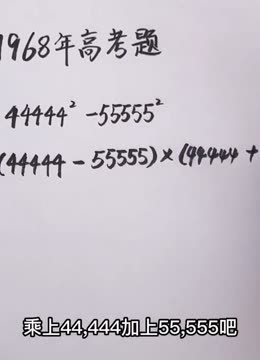 1968年高考题
44444² -55555²
(44444-55555)×(44444+
乘上44,444加上55,555吧